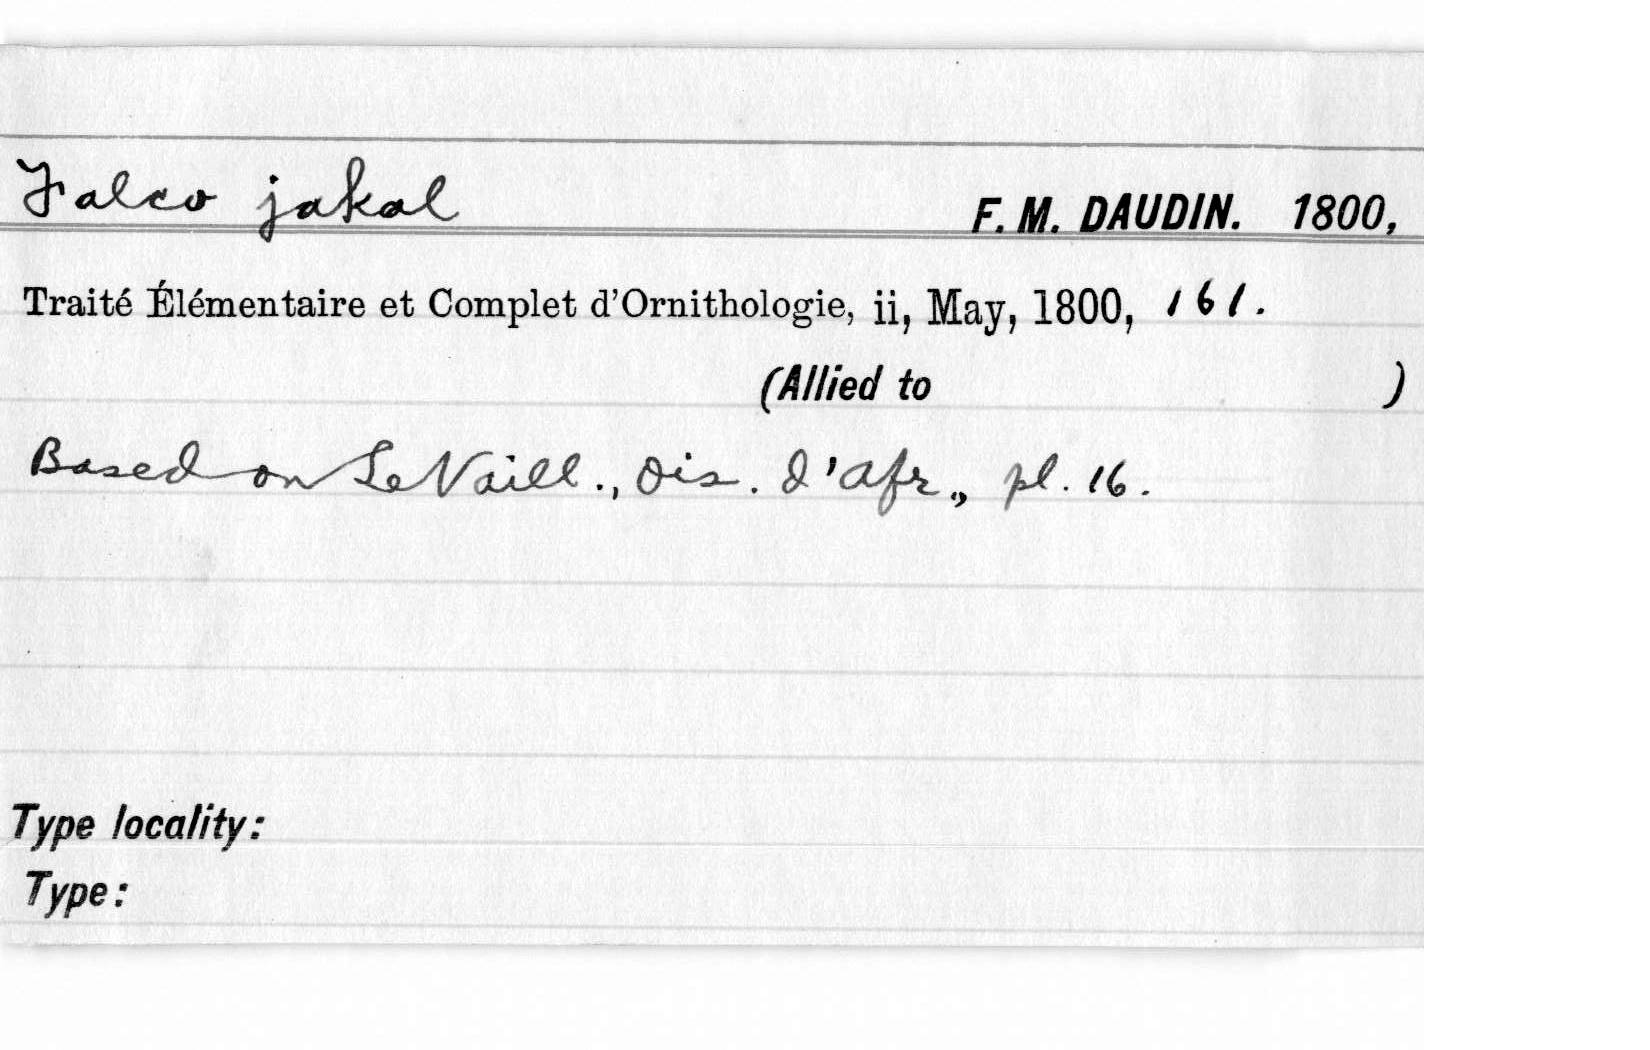 Falco jakal
F. M. DAUDIN. 1800,
Traité Élémentaire et Complet d'Ornithologie, ii, May, 1800, 161.
(Allied to )
Based on Le Vaill., Ois. d'Afr., pl. 16.
Type locality:
Type: